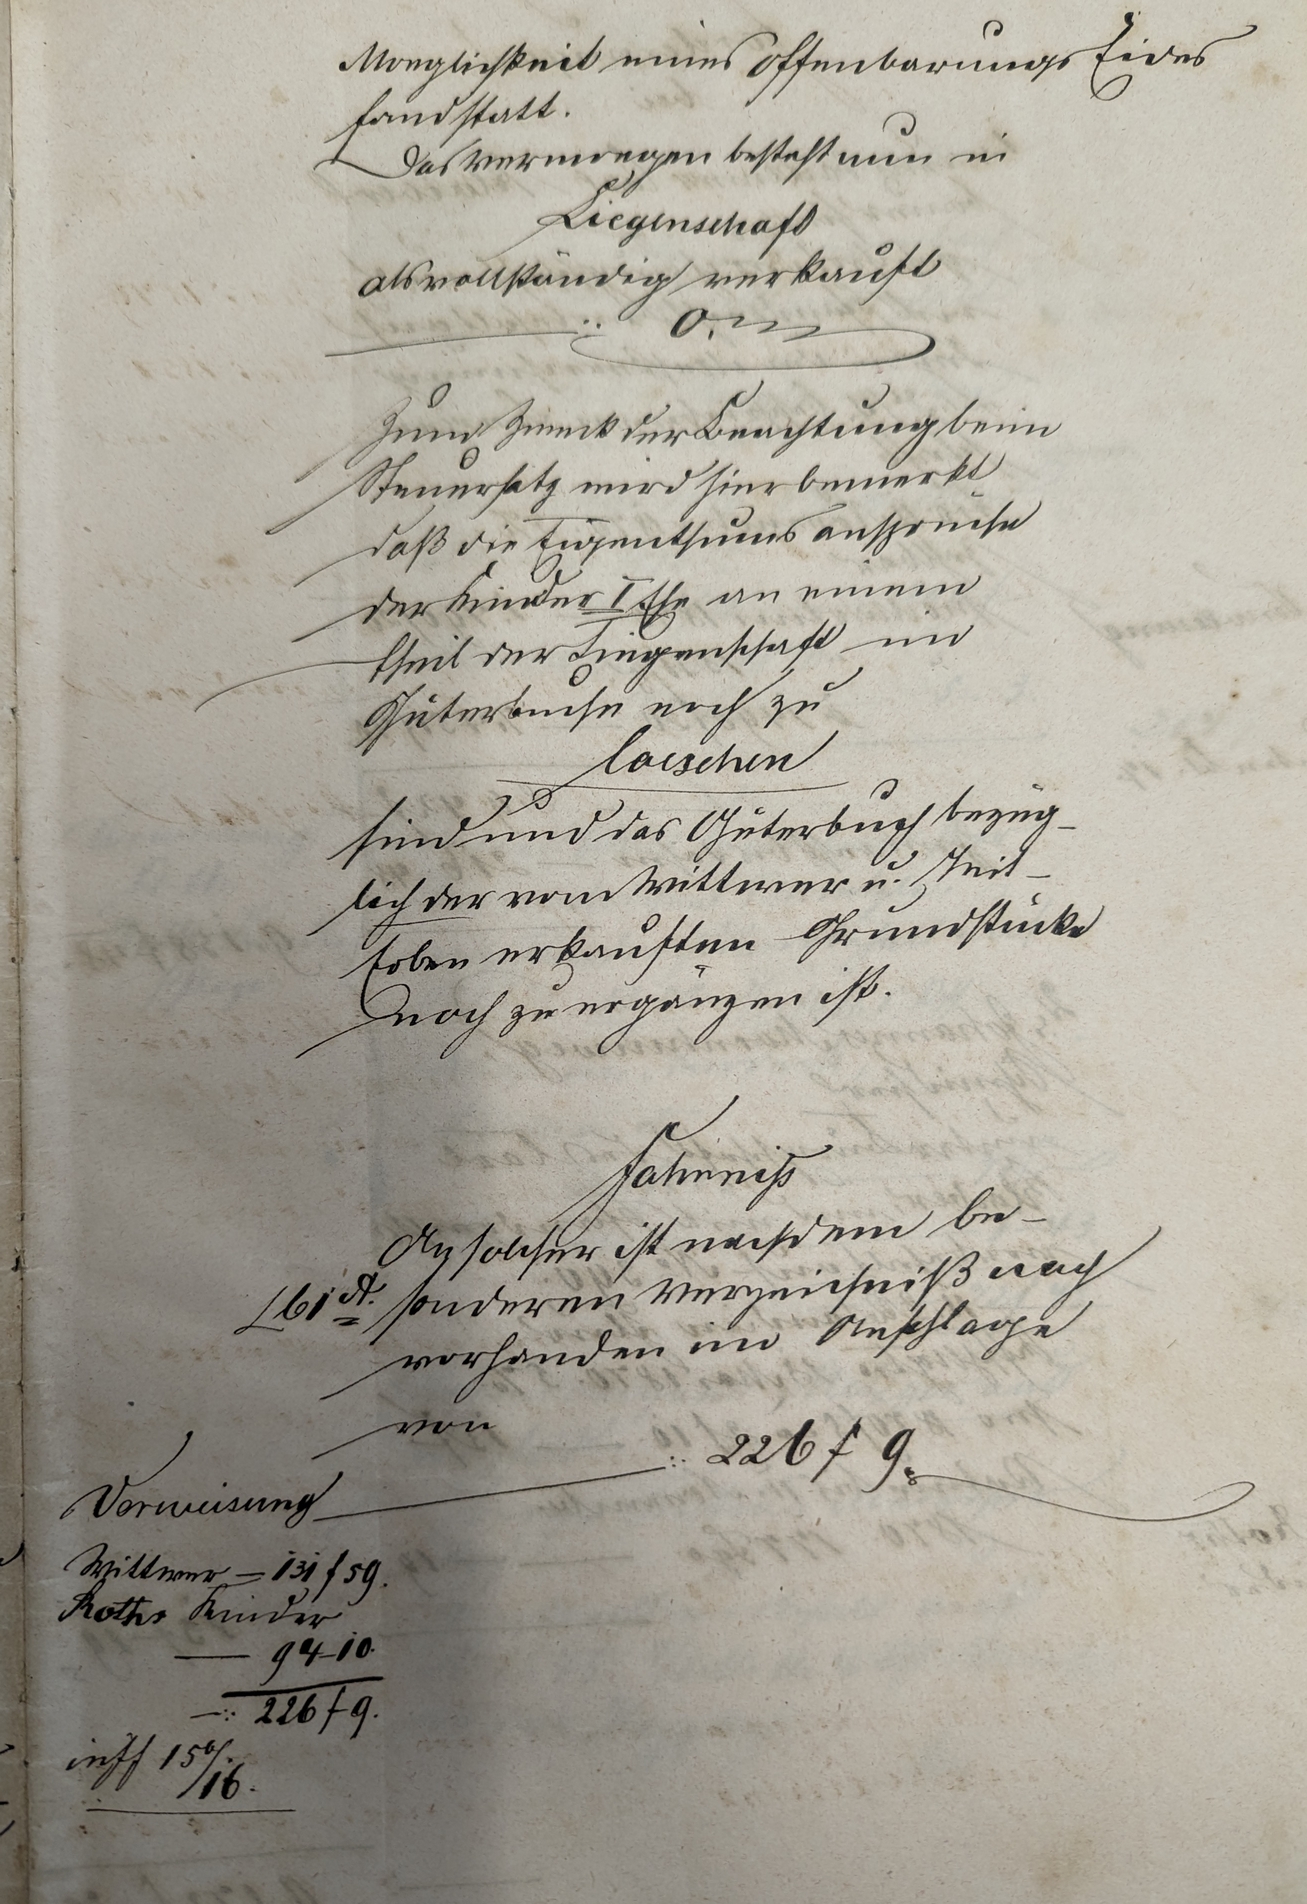 Moeglichkeit eines Offenbarungs Eides
fand statt.
Das Vermoegen besteht nun in
Liegenschaft
als vollständig verkauft
0.
Zum Zweck der Beachtung beim
Steuersatz wird hier bemerkt
daß die Eigenthums ansprüche
der Kinder I Ehe an einem
theil der Liegenschaft im
Güterbuche noch zu
loeschen
sind und das Güterbuch bezüg-
lich der vom Wittwer u.
Erben erkauften Grundstücke
noch zu ergänzen ist.
Fahrniss
An solcher ist nach dem be-
sonderen Verzeichniß nach
vorhanden im Anschlage
von
226 f 9.
Verweisung
Wittwer — 131 f 59.
Rothe Kinder
— 94 - 10.
—: 226 f 9.
15 b/.
/16.